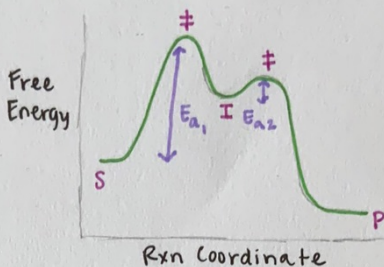 ‡
‡
Free
Energy
Ea₁
I
Ea2
S
P
Rxn Coordinate